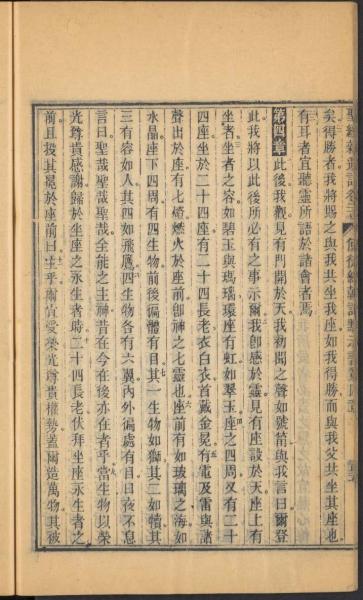 矣得勝者我將賜之與我共坐我座如我得勝而與我父共坐其座也
有耳者宜聽靈所語於諸會者焉
第四章此後我觀見有門開於天我初聞之聲如號笛與我言曰爾登
此我將以此後所必有之事示爾我卽感於靈見有座設於天座上有
坐者坐者之容如碧玉與瑪瑙環座有虹如翠玉座之四周又有二十
四座坐於二十四座有二十四長老衣白衣首戴金冕有電及雷與諸
聲出於座有七燈燃火於座前卽神之七靈也座前有如玻璃之海如
水晶座下四周有四生物前後徧體有目其一生物如獅其二如犢其
三有容如人其四如飛鷹四生物各有六翼內外徧處有目日夜不息
言曰聖哉聖哉聖哉全能之主神昔在今在後亦在者乎當生物以榮
光尊貴感謝歸於坐座之永生者時二十四長老伏拜坐座永生者之
前且投其冕於座前曰主乎爾宜受榮光尊貴權勢蓋爾造萬物其被